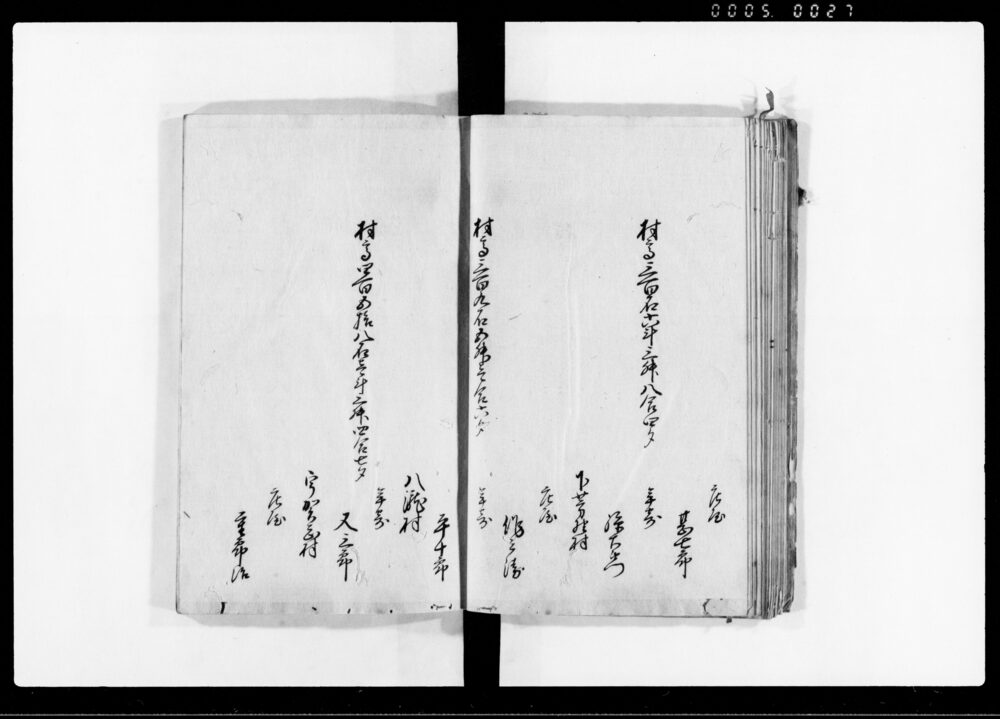 0005 0027
庄屋
甚七郎
年寄
孫右衛門
村高三百石十六斗三升八合四夕
下芳野村
庄屋
作之
年寄
村高三百九石五升三合六夕
平十郎
八瀧村
年寄
村高四百五拾八石三斗三升四合七夕
又三郎
宇賀志村
庄屋
重郎治